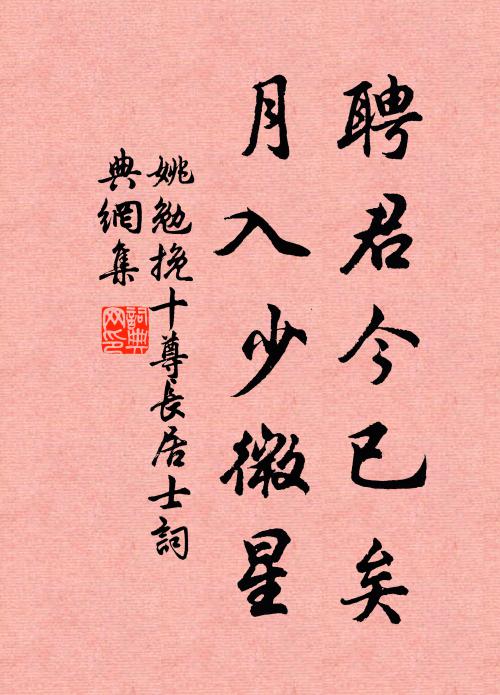 聘君今已矣
月入少微星
姚勉挽十尊長居士詞
典網集
詞典网印